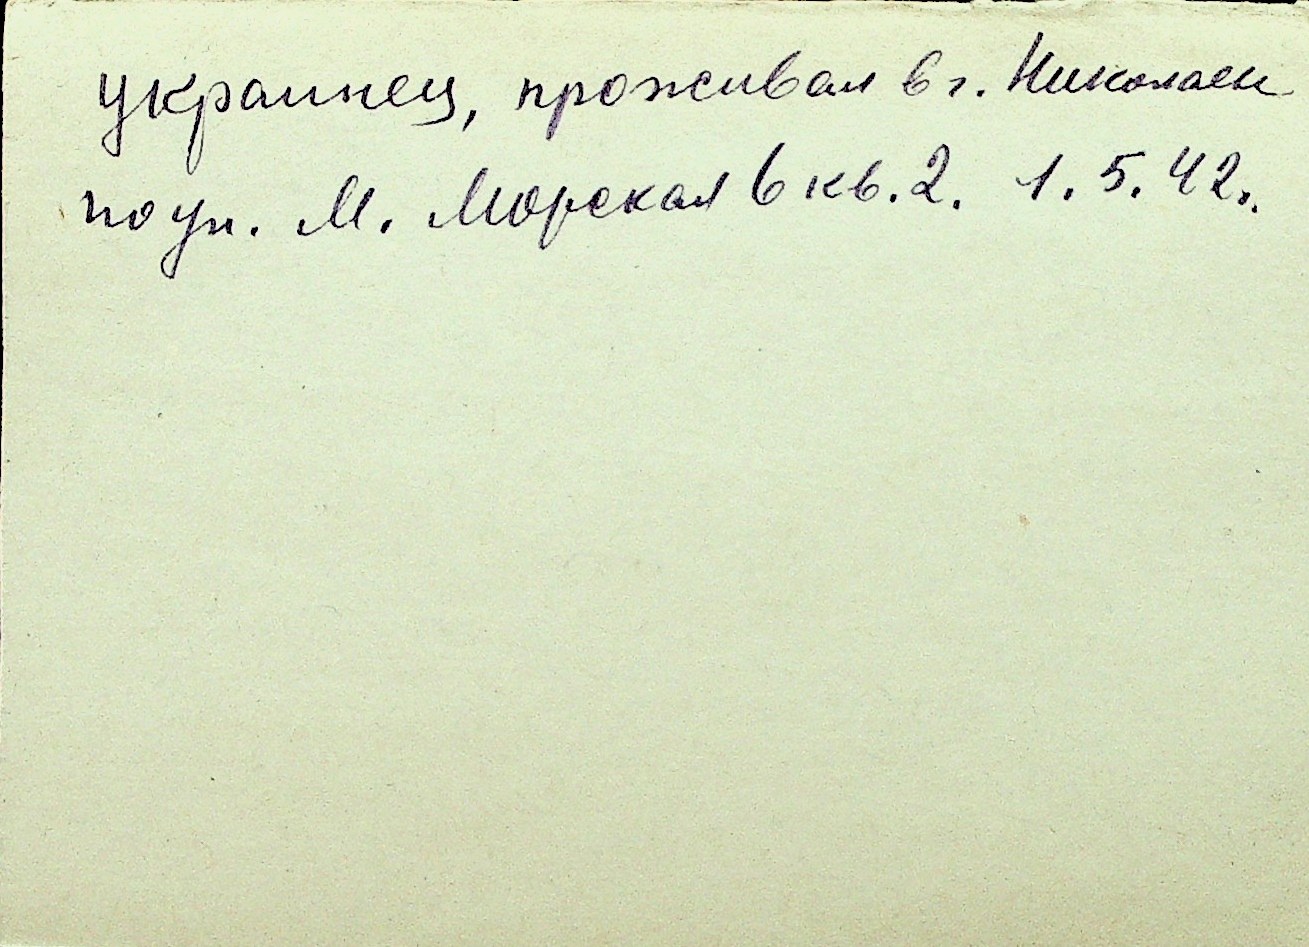 украинец, проживал в г. Николаеве
по ул. М. Морская 6 кв. 2. 1. 5. 42г.